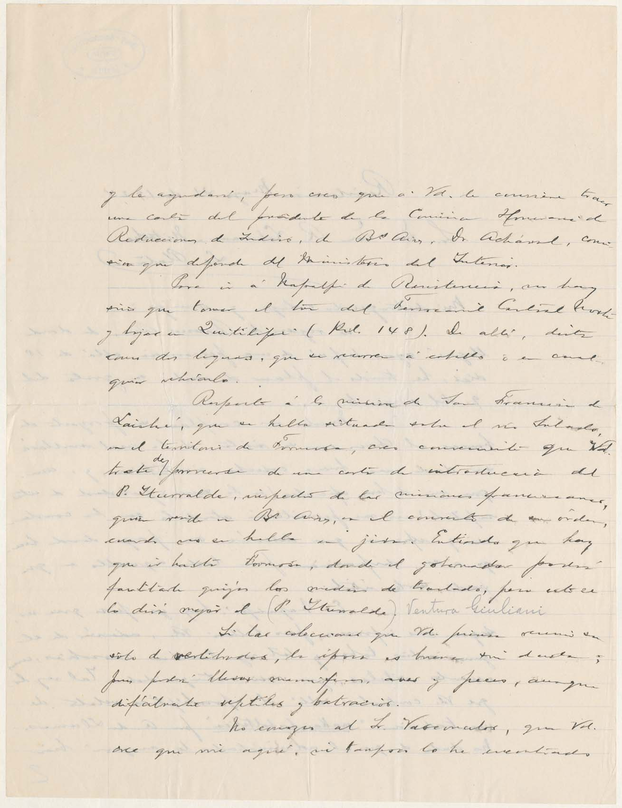 y le ayudará, pero creo que á Vd. le conviene traer
una carta del presidente de la Comisión Honoraria de
Reducciones de Indios, de Bs Aires, Dr. Achával, comi-
sión que depende del Ministerio del Interior.
Para ir á Napalpí de Resistencia, no hay
sino que tomar el tren del Ferrocarril Central Norte
y bajar en Quitilipi (Kil. 148). De allí, dista
como dos leguas, que se recorren á caballo o en cual-
quier vehículo.
Respecto á la misión de San Francisco de
Laishí, que se halla situada sobre el río Salado,
en el territorio de Formosa, creo conveniente que Vd.
trate de proveerse de una carta de introducción del
P. Iturralde, inspector de las misiones franciscanas,
que reside en Bs Aires, en el convento de su órden,
cuando no se halla en jira. Entiendo que hay
que ir hasta Formosa, donde el gobernador podrá
facilitarle quizás los medios de traslado, pero esto se
lo dirá mejor el (P. Iturralde) Ventura Giuliani
Si las colecciones que Vd. piensa reunir son
solo de vertebrados, la época es buena sin duda;
pues podrá llevar mamíferos, aves y peces, aunque
difícilmente reptiles y batracios.
No conozco al Sr. que Vd.
cree que vive aquí, ni tampoco lo he encontrado